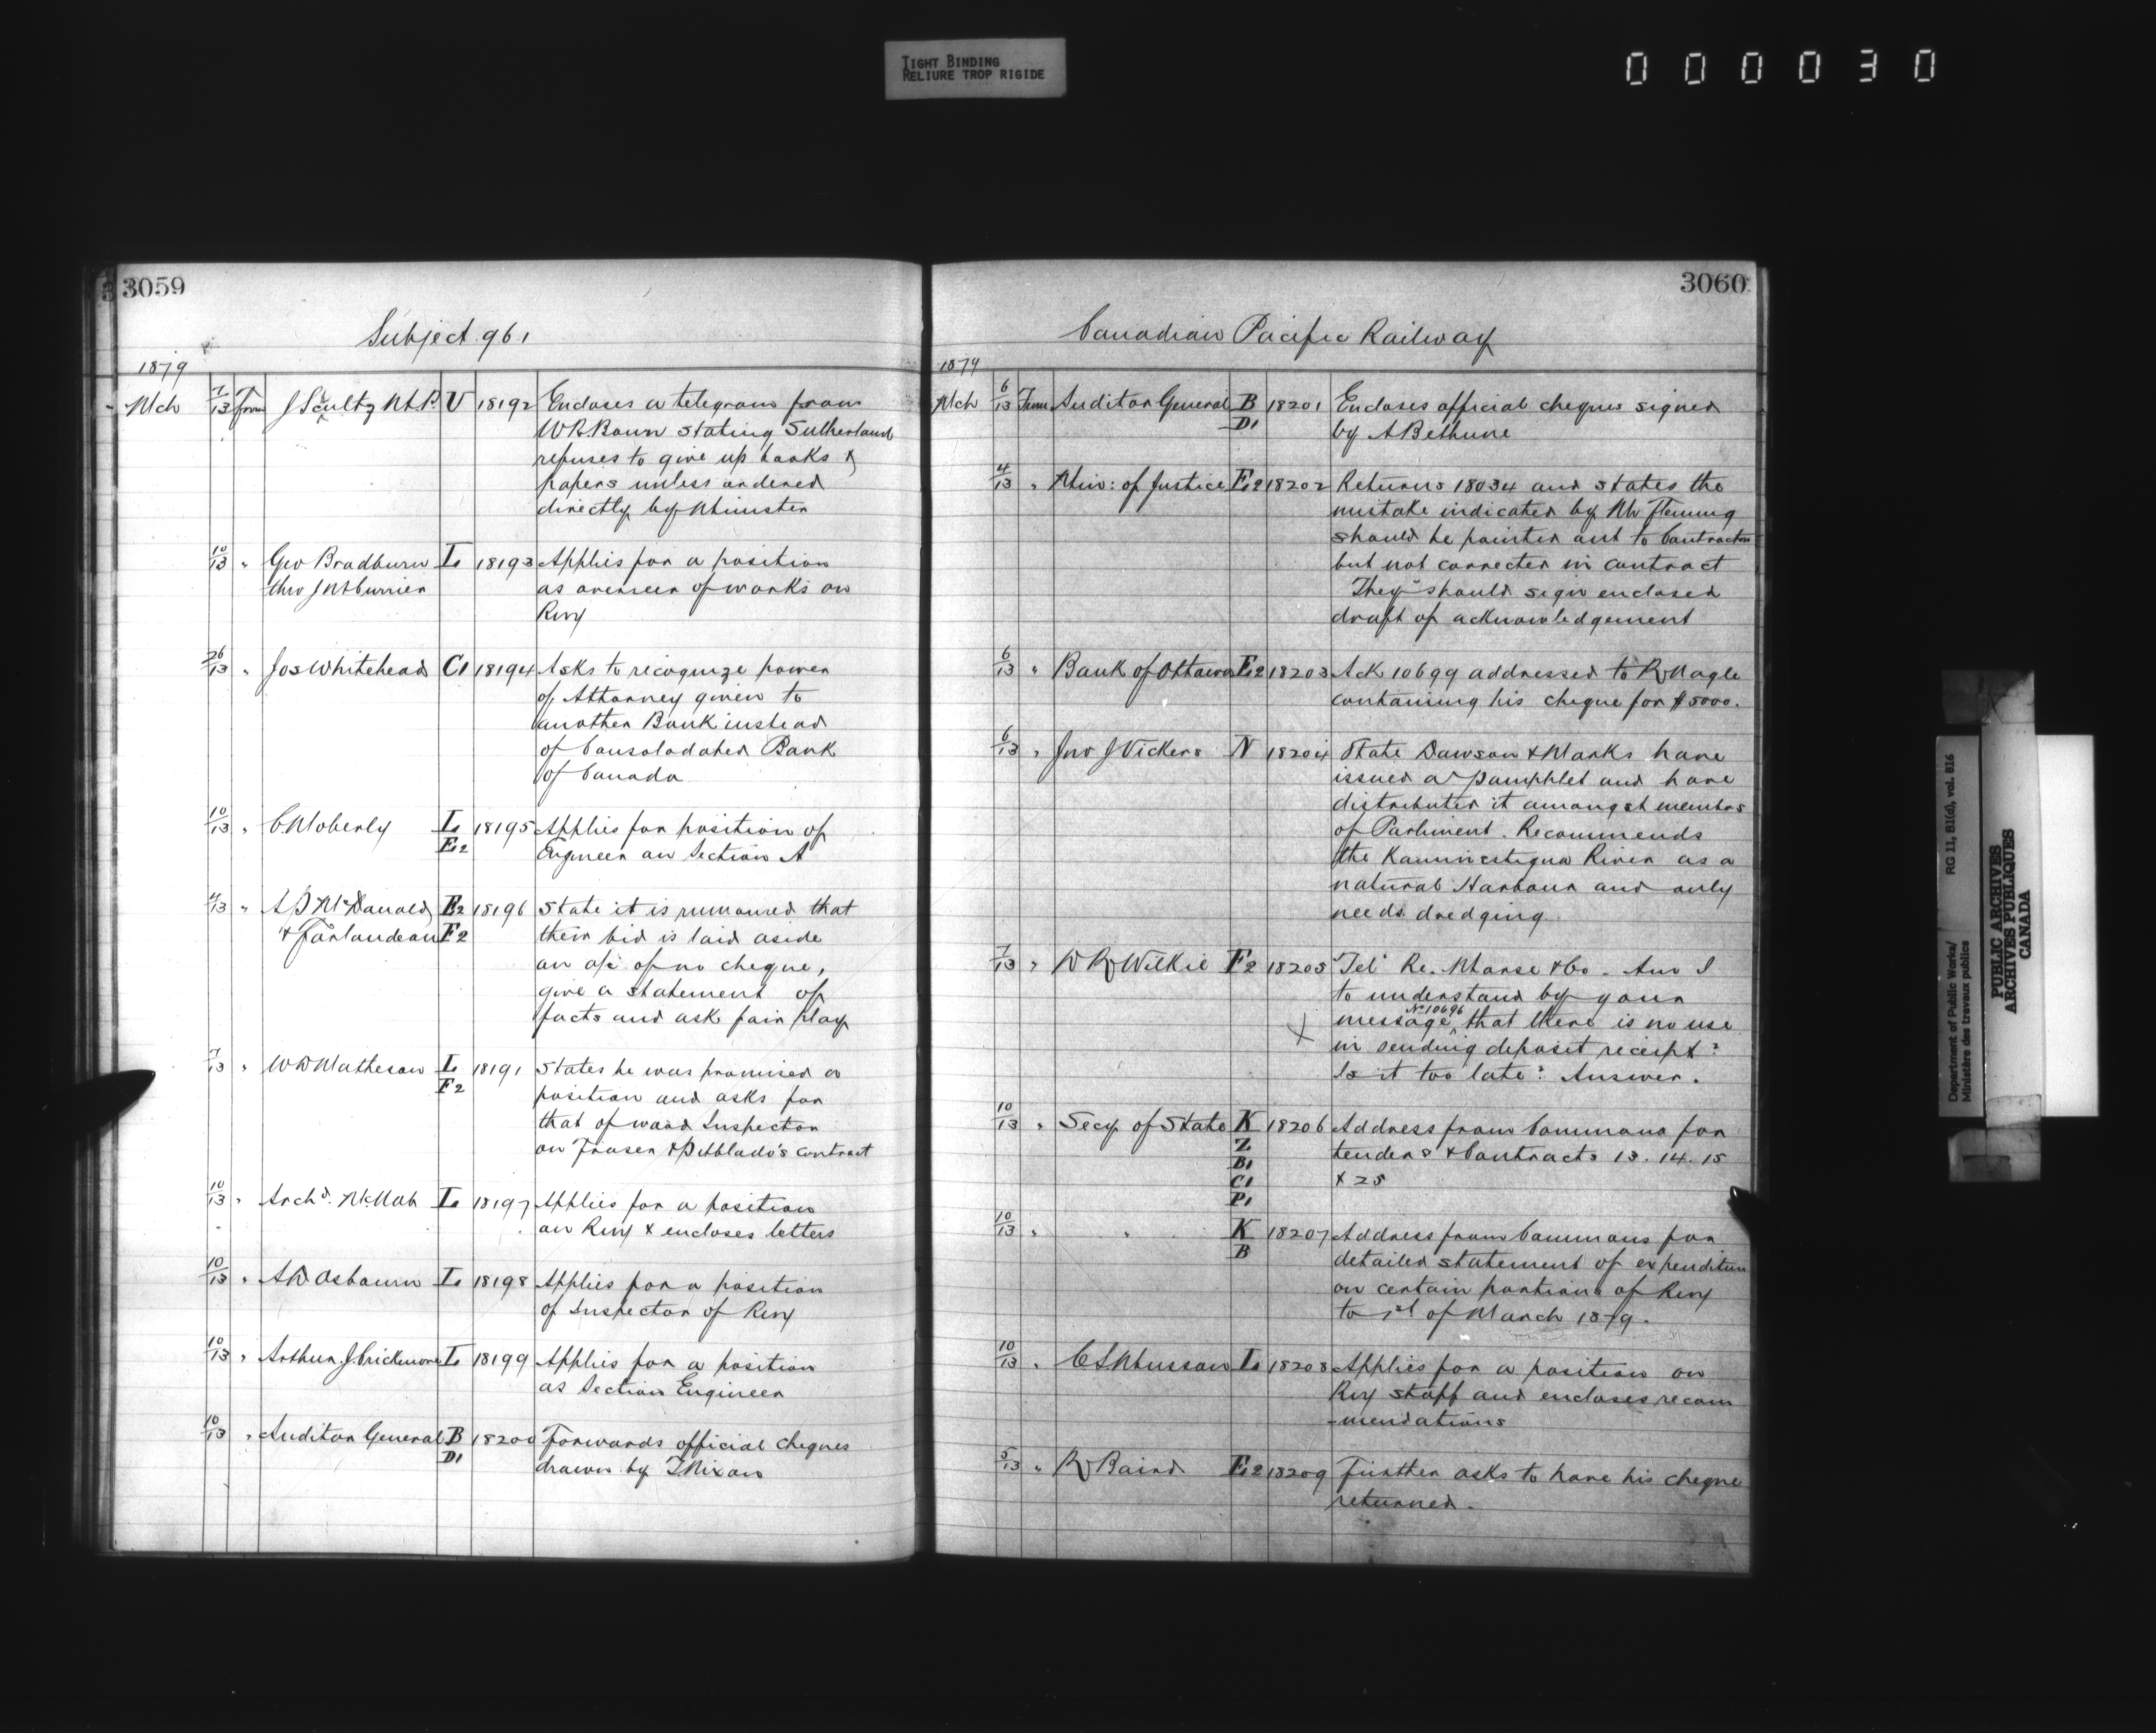 TIGHT BINDING
RELIURE TROP RIGIDE
000030
3059
Subject 961
1879
Mch 7/13 from J Scultz M.P. V 18192 Encloses a telegram from
W R Bown stating Sutherland
refuses to give up books &
papers unless ordered
directly by Minister
10/13 " Geo Bradburn L 18193 Applies for a position
thro J M Currier as overseer of works on
Rwy
26/13 " Jos Whitehead C1 18194 Asks to recognize power
of Attorney given to
another Bank instead
of Consolodated Bank
of Canada
10/13 " C Moberly L 18195 Applies for position of
E2 Engineer on Section A
4/13 " A P McDonald E2 18196 State it is rumoured that
& Farlandeau F2 their bid is laid aside
on a/c of no cheque,
give a statement of
facts and ask fair play
7/13 " W D Matheson L 18191 States he was promised a
F2 position and asks for
that of wood Inspector
on Fraser & Pitblado's contract
10/13 " Archd. McNab L 18197 Applies for a position
on Rwy & encloses letters
10/13 " A W Osbourn L 18198 Applies for a position
of Inspector of Rwy
10/13 " Arthur J Crickmore L 18199 Applies for a position
as Section Engineer
10/13 " Auditor General B 18200 Forwards official cheques
D1 drawn by T Nixon
3060
Canadian Pacific Railway
1879
Mch 6/13 From Auditor General B 18201 Encloses official cheques signed
D1 by A Bethune
4/13 " Min: of Justice E2 18202 Returns 18034 and states the
mistake indicated by Mr Fleming
should be pointed out to Contractors
but not corrected in contract
They should sign enclosed
draft of acknowledgement
6/13 " Bank of Ottawa E2 18203 Ack 10699 addressed to R Nagle
containing his cheque for $5000.
6/13 " Jno J Vickers N 18204 State Dawson & Marks have
issued a pamphlet and have
distributed it amongst membrs
of Parliment. Recommends
the Kaministiqua River as a
natural Harbour and only
needs dredging
7/13 " D R Wilkie F2 18205 "Tel" Re. Morse & Co. Am I
to understand by your
No 10696
message ^ that there is no use
in sending deposit receipt?
Is it too late? Answer.
10/13 " Secy of State K 18206 Address from Commons for
Z tenders & Contracts 13. 14. 15
B1
C1 & 25
P1
10/13 " " K 18207 Address from Commons for
B detailed statement of expenditure
on certain portions of Rwy
to 1st of March 1879.
10/13 " C S Husson L 18208 Applies for a position on
Rwy staff and encloses recom
-mendations
5/13 " R Baird E2 18209 Further asks to have his cheque
returned.
Department of Public Works/ RG 11, B1(d), vol. 816
Ministère des travaux publics
PUBLIC ARCHIVES
ARCHIVES PUBLIQUES
CANADA